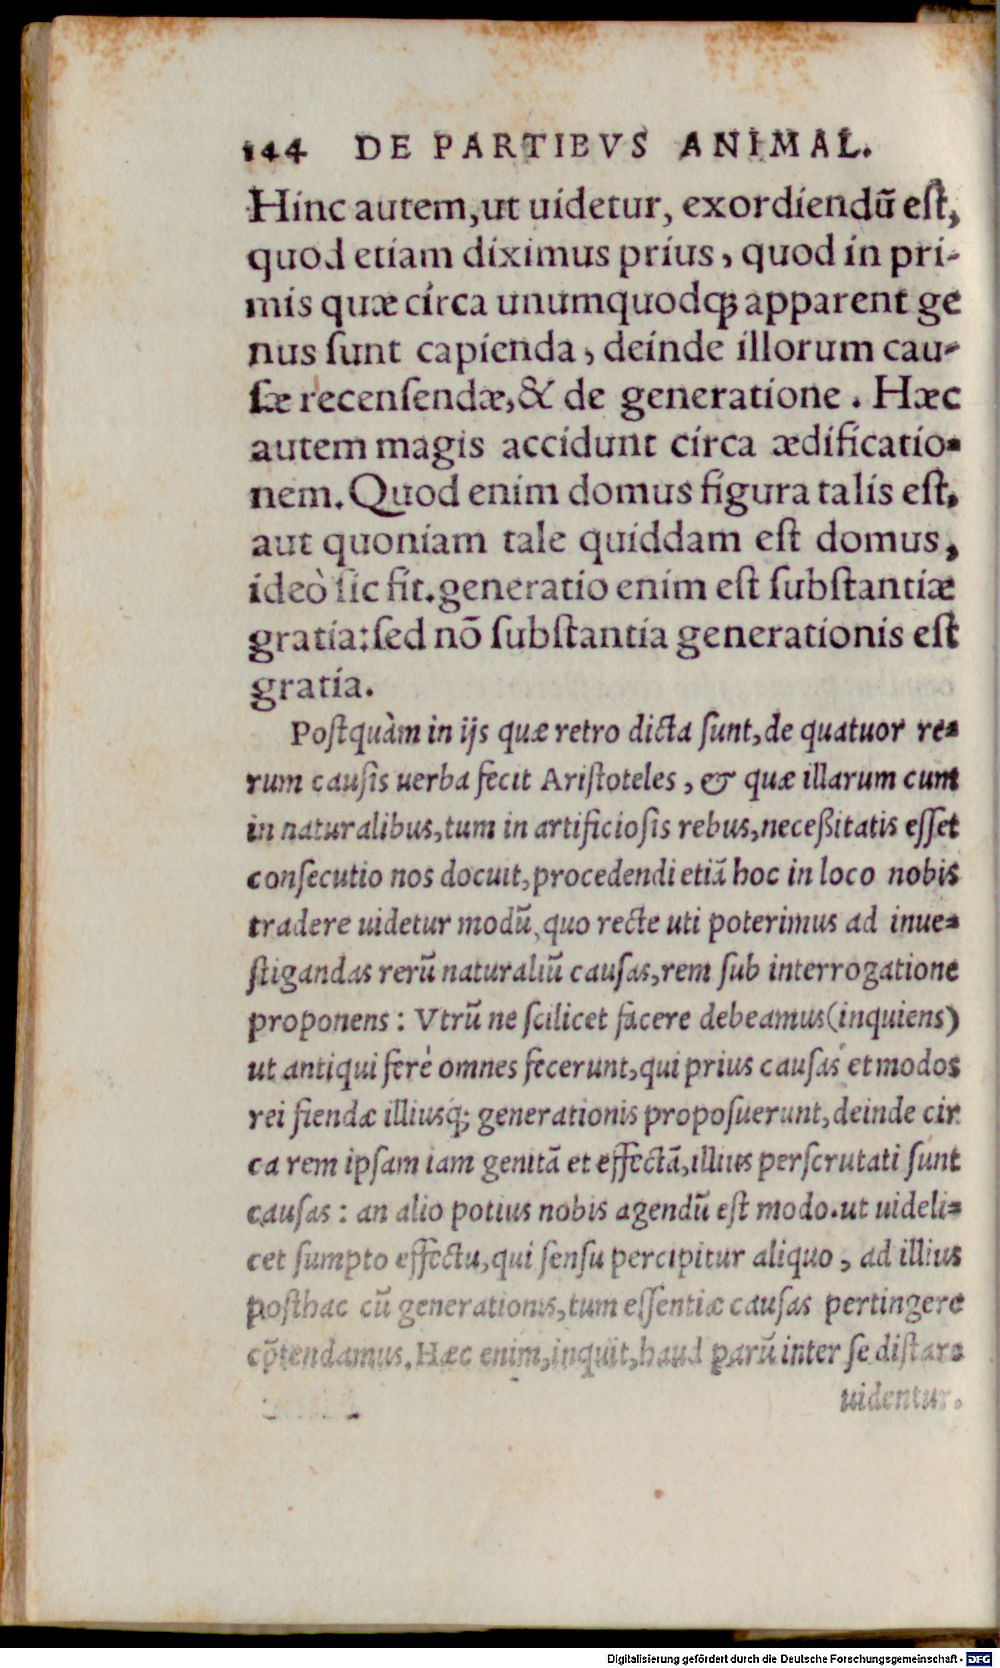 144 DE PARTIBVS ANIMAL.
Hinc autem, ut uidetur, exordiendū est,
quod etiam diximus prius, quod in pri-
mis quæ circa unumquodqꝫ apparent ge
nus sunt capienda, deinde illorum cau-
sæ recensendæ, & de generatione. Hæc
autem magis accidunt circa ædificatio-
nem. Quod enim domus figura talis est,
aut quoniam tale quiddam est domus,
ideò sic fit. generatio enim est substantiæ
gratia: sed nō substantia generationis est
gratia.
Postquàm in ijs quæ retro dicta sunt, de quatuor re-
rum causis uerba fecit Aristoteles, & quæ illarum cum
in naturalibus, tum in artificiosis rebus, neceßitatis esset
consecutio nos docuit, procedendi etiā hoc in loco nobis
tradere uidetur modū, quo recte uti poterimus ad inue-
stigandas rerū naturaliū causas, rem sub interrogatione
proponens: Vtrū ne scilicet facere debeamus (inquiens)
ut antiqui ferè omnes fecerunt, qui prius causas et modos
rei fiendæ illiusq; generationis proposuerunt, deinde cir
ca rem ipsam iam genitā et effectā, illius perscrutati sunt
causas: an alio potius nobis agendū est modo. ut uideli-
cet sumpto effectu, qui sensu percipitur aliquo, ad illius
posthac cū generationis, tum essentiæ causas pertingere
cōtendamus. Hæc enim, inquit, haud parū inter se distare
uidentur.
Digitalisierung gefördert durch die Deutsche Forschungsgemeinschaft - DFG